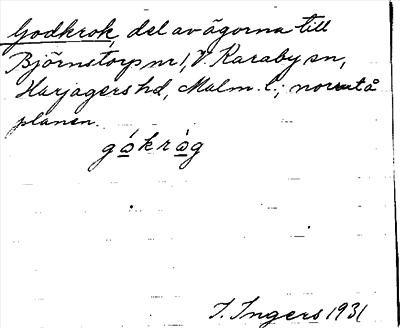 Godkrok, del av ägorna till
Björnstorp nr 1, V. Karaby sn,
Harjagers hd, Malm. l.; norrut å
planen.
gòkròg
I. Ingers 1931